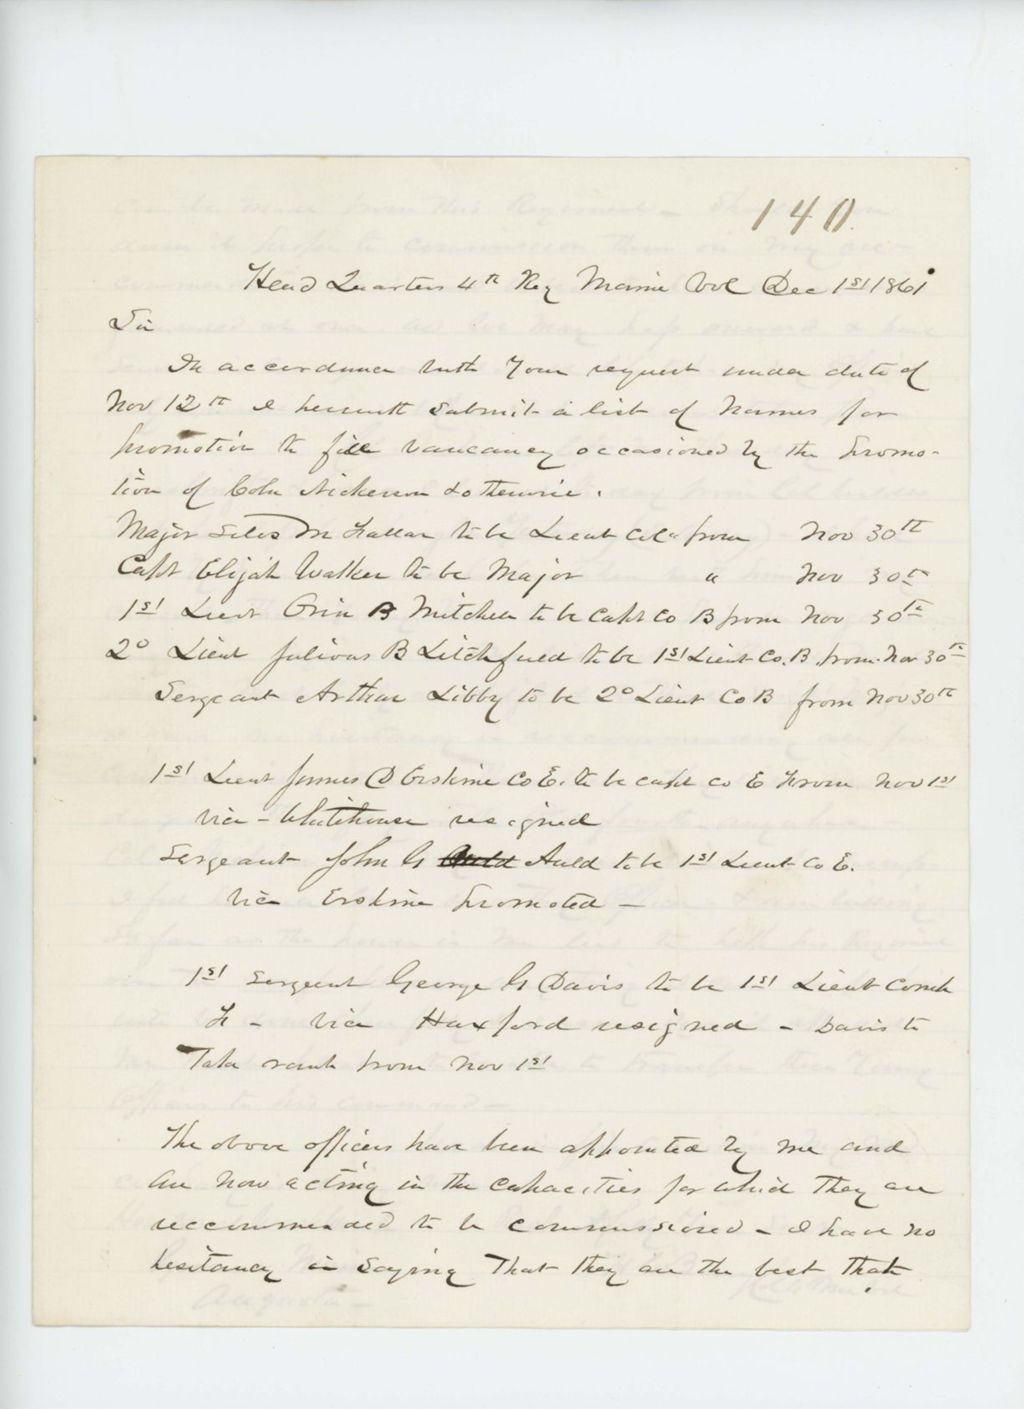 140.
Head Quarters 4th Reg Maine Vol Dec 1st 1861
Sir
In accordance with Your request under date of
Nov 12th I herewith submit a list of names for
promotion to fill vaucancy occasioned by the promo-
tion of Coln Nickerson & otherwise.
Major Silas M Fuller to be Lieut Col from Nov 30th
Capt Elijah Walker to be Major " Nov 30th
1st Lieut Orin B Mitchell to be Capt Co B from Nov 30th
2o Lieut Julious B Litchfield to be 1st Lieut Co. B. from Nov 30th
Sergeant Arthur Libby to be 2o Lieut Co B from Nov 30th
1st Lieut James D Erskine Co E. to be capt co E From Nov 1st
vice - Whitehouse resigned
Sergeant John G Auld to be 1st Lieut Co E.
vice Erskine promoted -
1st Sergeant George G Davis to be 1st Lieut
- vice Huxford resigned - Davis to
Take rank from Nov 1st
The above officers have been appointed by me and
are now acting in the capacities for which they are
reccommended to be commissioned - I have no
hesitancy in saying That they are the best that